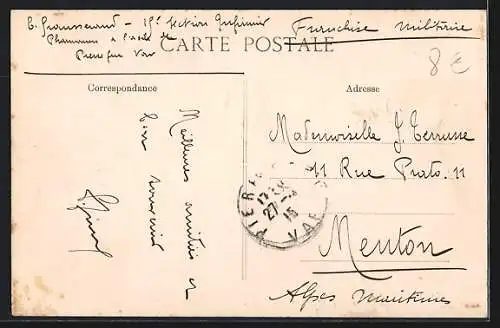 15e Section Infirmier
Pharmacien à l'asile de
Pierrefeu Var
Franchise Militaire
CARTE POSTALE
8 €
Correspondance
Adresse
Meilleures amitiés et
bon souvenir
Mademoiselle J. Terrusse
11 Rue Prato. 11
Menton
Alpes Maritimes
PIERRE
27
15
VAR